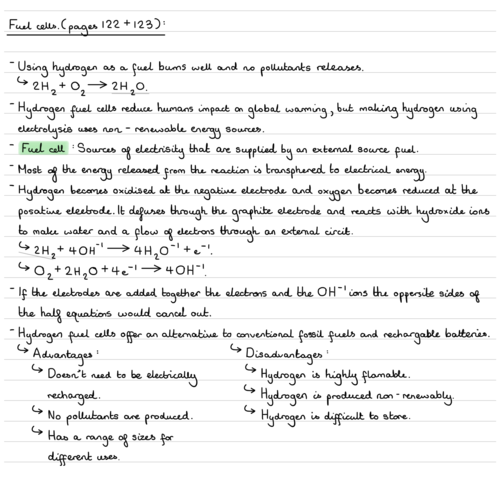 Fuel cells. (pages 122 + 123):
- Using hydrogen as a fuel burns well and no pollutants releases.
↳ 2H₂ + O₂ → 2H₂O.
- Hydrogen fuel cells reduce humans impact on global warming, but making hydrogen using
electrolysis uses non-renewable energy sources.
- Fuel cell: Sources of electrisity that are supplied by an external source fuel.
- Most of the energy released from the reaction is transphered to electrical energy.
- Hydrogen becomes oxidised at the negative electrode and oxygen becomes reduced at the
posative electrode. It defuses through the graphite electrode and reacts with hydroxide ions
to make water and a flow of electrons through an external circit.
↳ 2H₂ + 4OH⁻¹ → 4H₂O⁻¹ + e⁻¹.
↳ O₂ + 2H₂O + 4e⁻¹ → 4OH⁻¹.
- If the electrodes are added together the electrons and the OH⁻¹ ions the oppersite sides of
the half equations would cancel out.
- Hydrogen fuel cells offer an alternative to conventional fossil fuels and rechargable batteries.
↳ Advantages:
↳ Doesn't need to be electrically
recharged.
↳ No pollutants are produced.
↳ Has a range of sizes for
different uses.
↳ Disadvantages:
↳ Hydrogen is highly flamable.
↳ Hydrogen is produced non-renewably.
↳ Hydrogen is difficult to store.